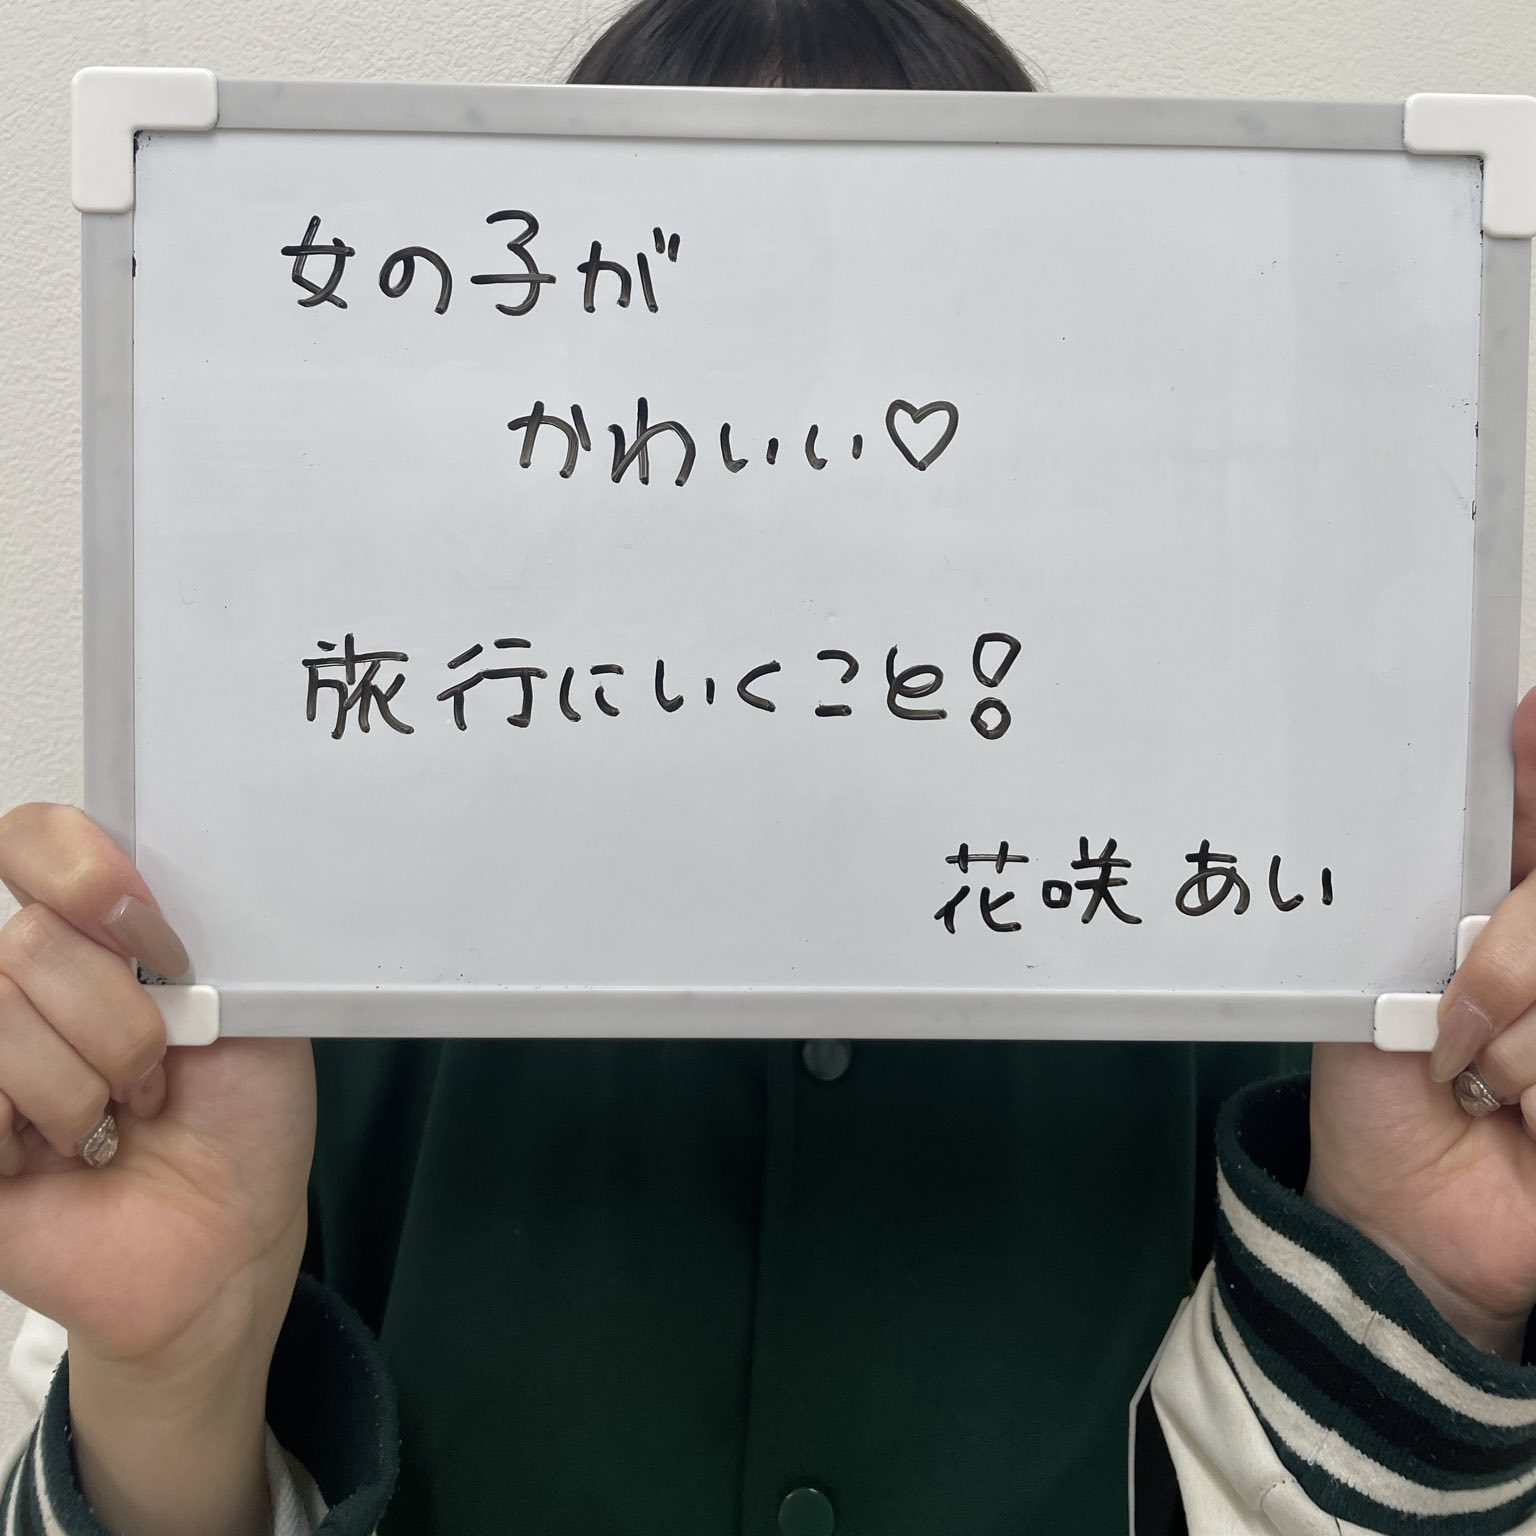 女の子が
かわいい♡
旅行にいくこと!
花咲 あい